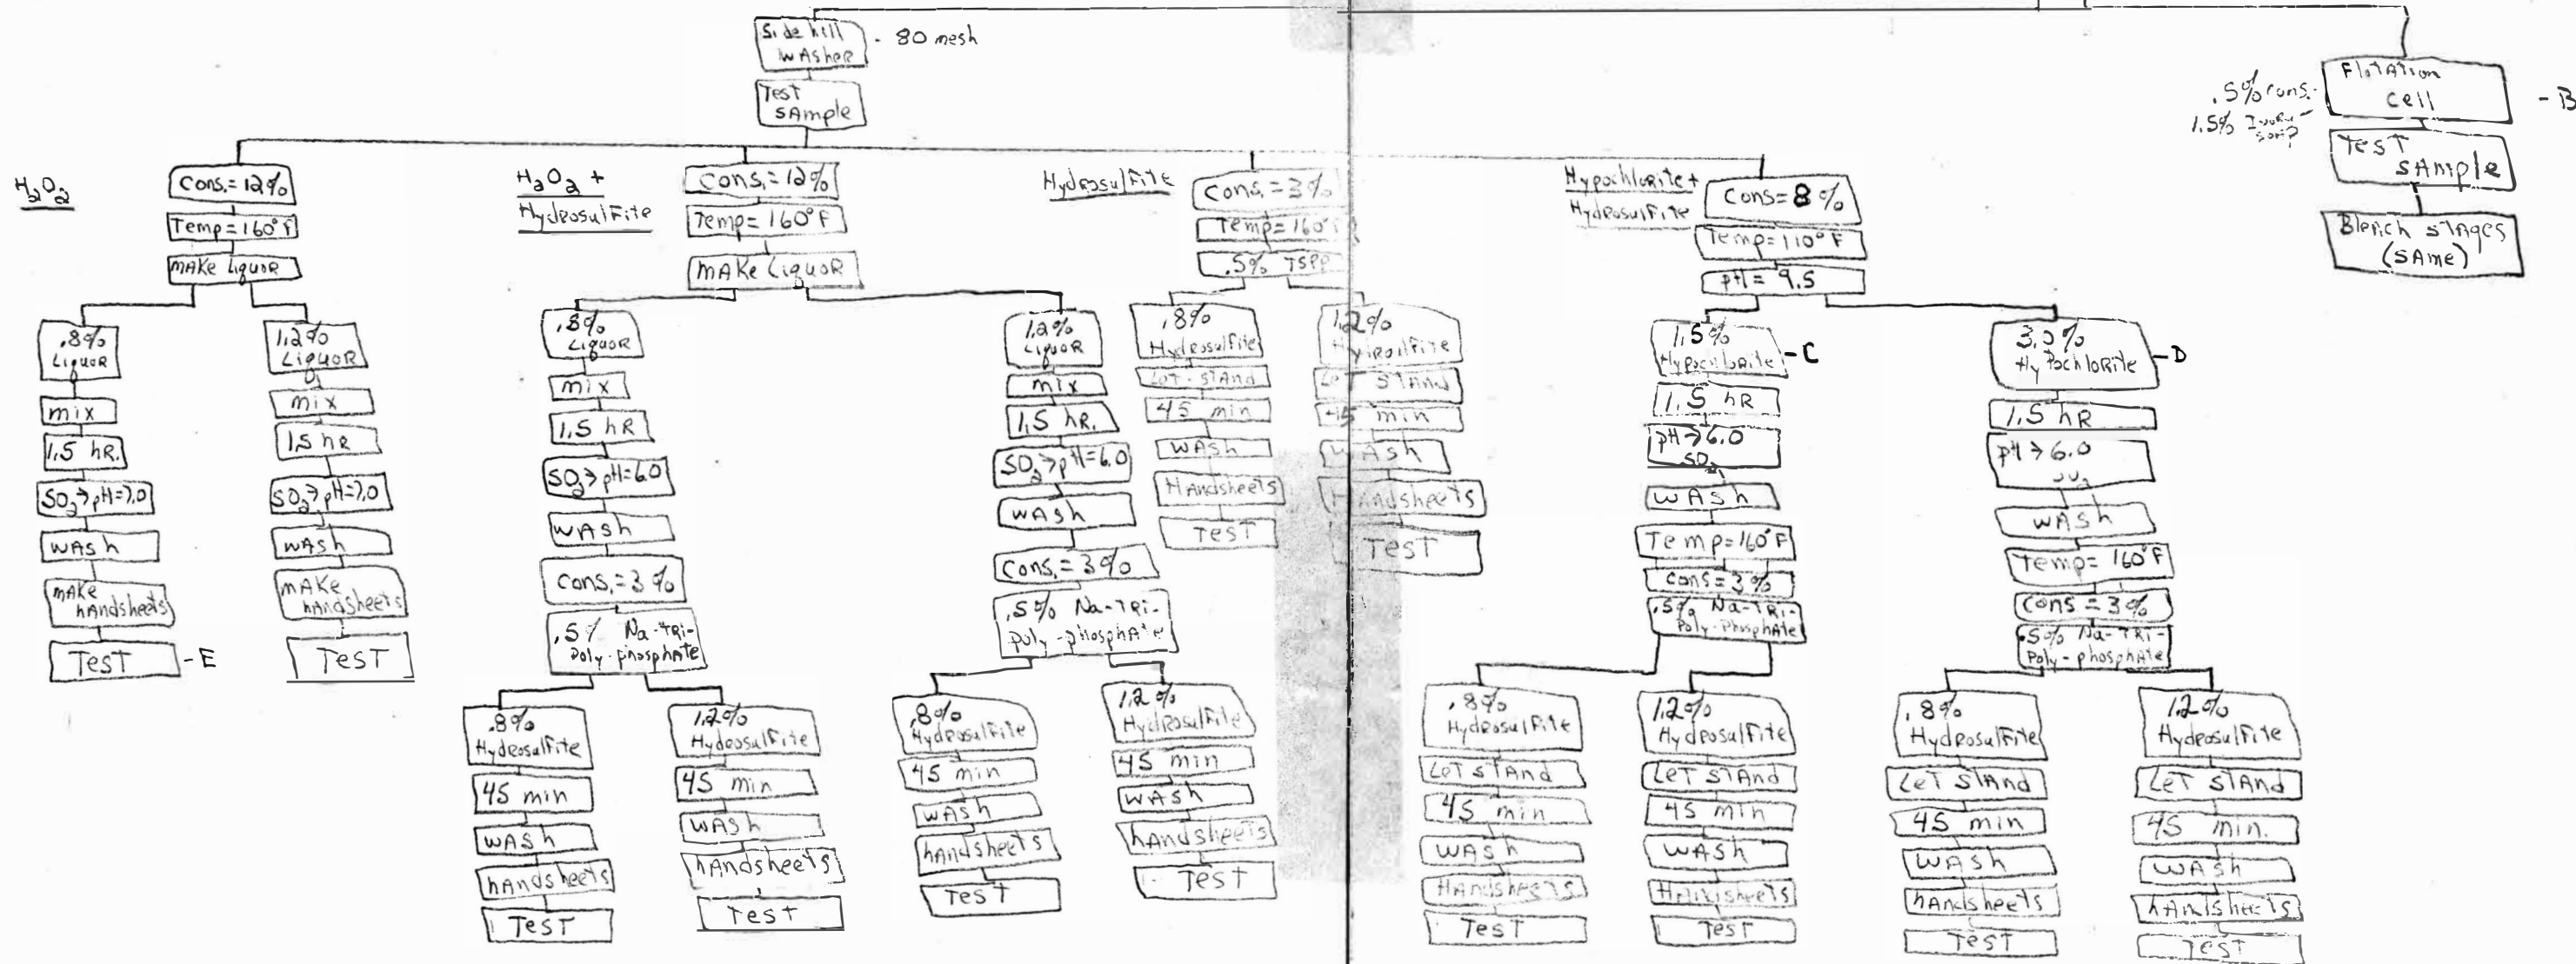 Side hill
WAsheR
- 80 mesh
Test
SAmple
Flotation
Cell
- B
.5% cons.
1.5%
Test
SAmple
Bleach stages
(SAme)
H2O2
Cons.=12%
Temp=160°F
MAKe LiquoR
.8%
LiquoR
mix
1.5 hR.
SO2→pH=7.0
WAsh
MAKe
hAndsheets
TesT
-E
1.2%
LiquoR
mix
1.5 hR
SO2→pH=7.0
WAsh
MAKe
hAndsheets
TesT
H2O2 +
HydRosulFite
Cons.=12%
Temp=160°F
MAKe LiquoR
.8%
LiquoR
mix
1.5 hR
SO2→pH=6.0
WAsh
Cons.=3%
.5% Na-TRi-
Poly-phosphAte
.8%
HydRosulFite
45 min
WAsh
hAndsheets
TesT
1.2%
HydRosulFite
45 min
WAsh
hAndsheets
TesT
1.2%
LiquoR
mix
1.5 hR.
SO2→pH=6.0
WAsh
Cons.=3%
.5% Na-TRi-
Poly-phosphAte
.8%
HydRosulFite
45 min
WAsh
hAndsheets
TesT
1.2%
HydRosulFite
45 min
WAsh
hAndsheets
TesT
HydRosulFite
Cons.=3%
Temp=160°F
.5% TSPP
.8%
HydRosulFite
LeT STAnd
45 min
WAsh
HAndsheets
TesT
1.2%
HydRosulFite
LeT STAnd
45 min
WAsh
HAndsheets
TesT
HypochloRite+
HydRosulFite
Cons=8%
Temp=110°F
pH=9.5
1.5%
HypochloRite
-C
1.5 hR
pH→6.0
SO2
WAsh
Temp=160°F
Cons=3%
.5% Na-TRi-
Poly-PhosphAte
.8%
HydRosulFite
LeT STAnd
45 min
WAsh
HAndsheets
TesT
1.2%
HydRosulFite
LeT STAnd
45 min
WAsh
HAndsheets
TesT
3.0%
HypochloRite
-D
1.5 hR
pH→6.0
SO2
WAsh
Temp=160°F
Cons=3%
.5% Na-TRi-
Poly-phosphAte
.8%
HydRosulFite
LeT STAnd
45 min
WAsh
hAndsheets
TesT
1.2%
HydRosulFite
LeT STAnd
45 min.
WAsh
hAndsheets
TesT